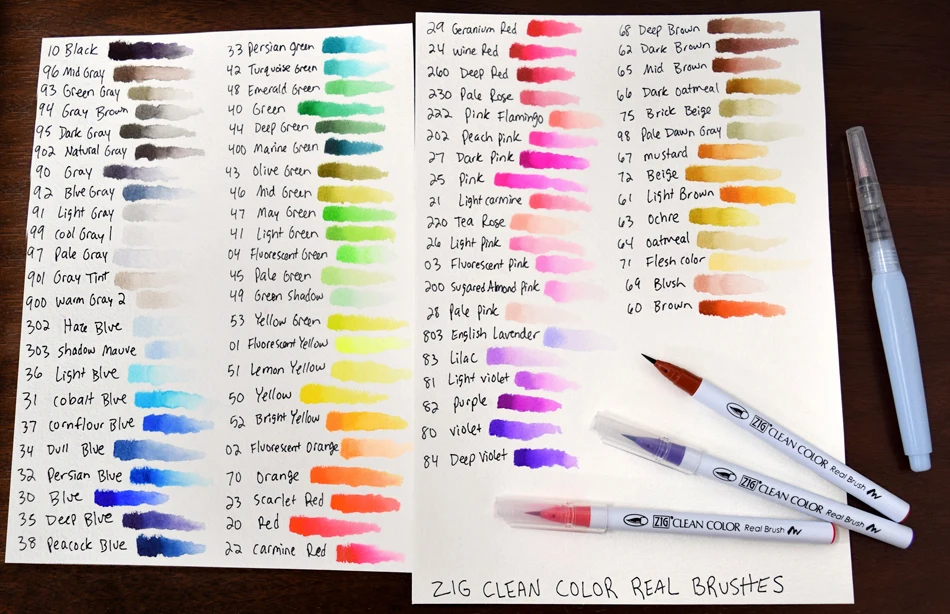 10 Black
96 Mid Gray
93 Green Gray
94 Gray Brown
95 Dark Gray
902 Natural Gray
90 Gray
92 Blue Gray
91 Light Gray
99 Cool Gray 1
97 Pale Gray
901 Gray Tint
900 Warm Gray 2
302 Haze Blue
303 Shadow Mauve
36 Light Blue
31 Cobalt Blue
37 Cornflour Blue
34 Dull Blue
32 Persian Blue
30 Blue
35 Deep Blue
38 Peacock Blue
33 Persian Green
42 Turquoise Green
48 Emerald Green
40 Green
44 Deep Green
400 Marine Green
43 Olive Green
46 Mid Green
47 May Green
41 Light Green
04 Fluorescent Green
45 Pale Green
49 Green Shadow
53 Yellow Green
01 Fluorescent Yellow
51 Lemon Yellow
50 Yellow
52 Bright Yellow
02 Fluorescent Orange
70 Orange
23 Scarlet Red
20 Red
22 Carmine Red
29 Geranium Red
24 Wine Red
260 Deep Red
230 Pale Rose
222 Pink Flamingo
202 Peach Pink
27 Dark Pink
25 Pink
21 Light Carmine
220 Tea Rose
26 Light Pink
03 Fluorescent Pink
200 Sugared Almond Pink
28 Pale Pink
803 English Lavender
83 Lilac
81 Light Violet
82 Purple
80 Violet
84 Deep Violet
68 Deep Brown
62 Dark Brown
65 Mid Brown
66 Dark Oatmeal
75 Brick Beige
98 Pale Dawn Gray
67 Mustard
72 Beige
61 Light Brown
63 Ochre
64 Oatmeal
71 Flesh Color
69 Blush
60 Brown
ZIG CLEAN COLOR Real Brush
ZIG CLEAN COLOR Real Brush
ZIG CLEAN COLOR Real Brush
ZIG CLEAN COLOR REAL BRUSHES